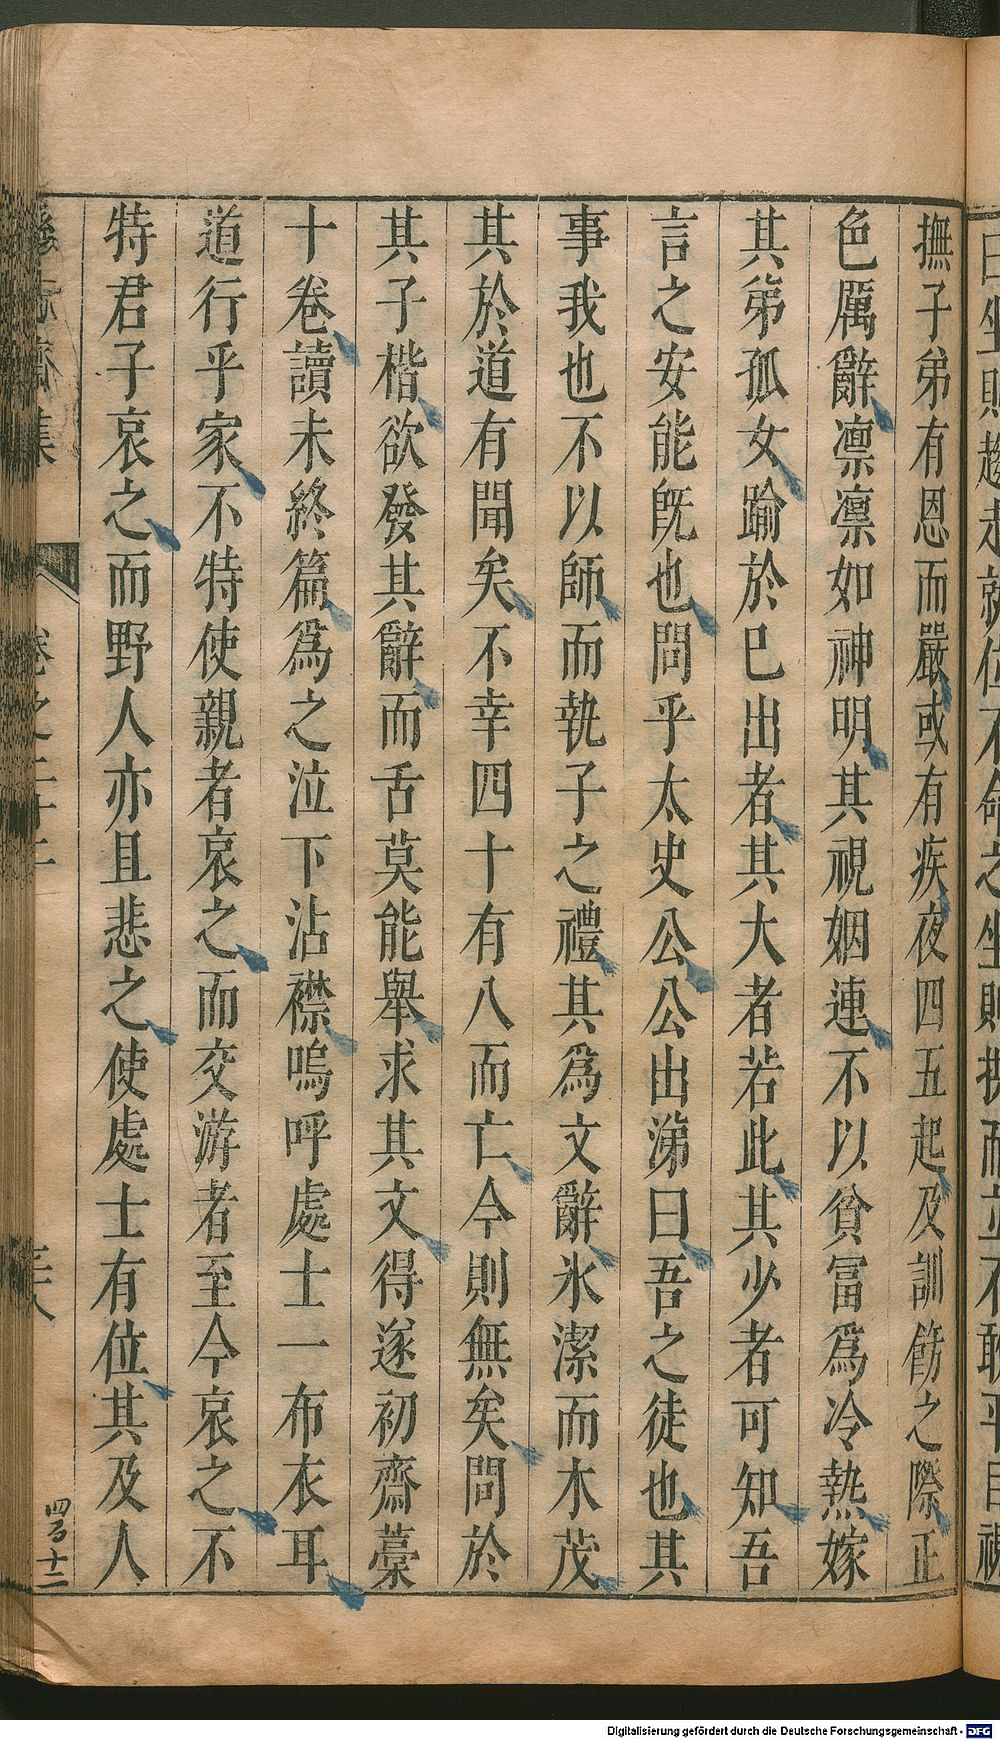 撫子弟有恩而嚴或有疾夜四五起及訓飭之際正
色厲辭凛凛如神明其視姻連不以貧冨爲冷熱嫁
其弟孤女踰於巳出者其大者若此其少者可知吾
言之安能旣也問乎太史公公出涕曰吾之徒也其
事我也不以師而執子之禮其爲文辭氷潔而木茂
其於道有聞矣不幸四十有八而亡今則無矣問於
其子楷欲發其辭而舌莫能舉求其文得遂初齋藁
十卷讀未終篇爲之泣下沾襟嗚呼處士一布衣耳
道行乎家不特使親者哀之而交游者至今哀之不
特君子哀之而野人亦且悲之使處士有位其及人
遜志齋集
卷之二十二
三八
Digitalisierung gefördert durch die Deutsche Forschungsgemeinschaft - DFG